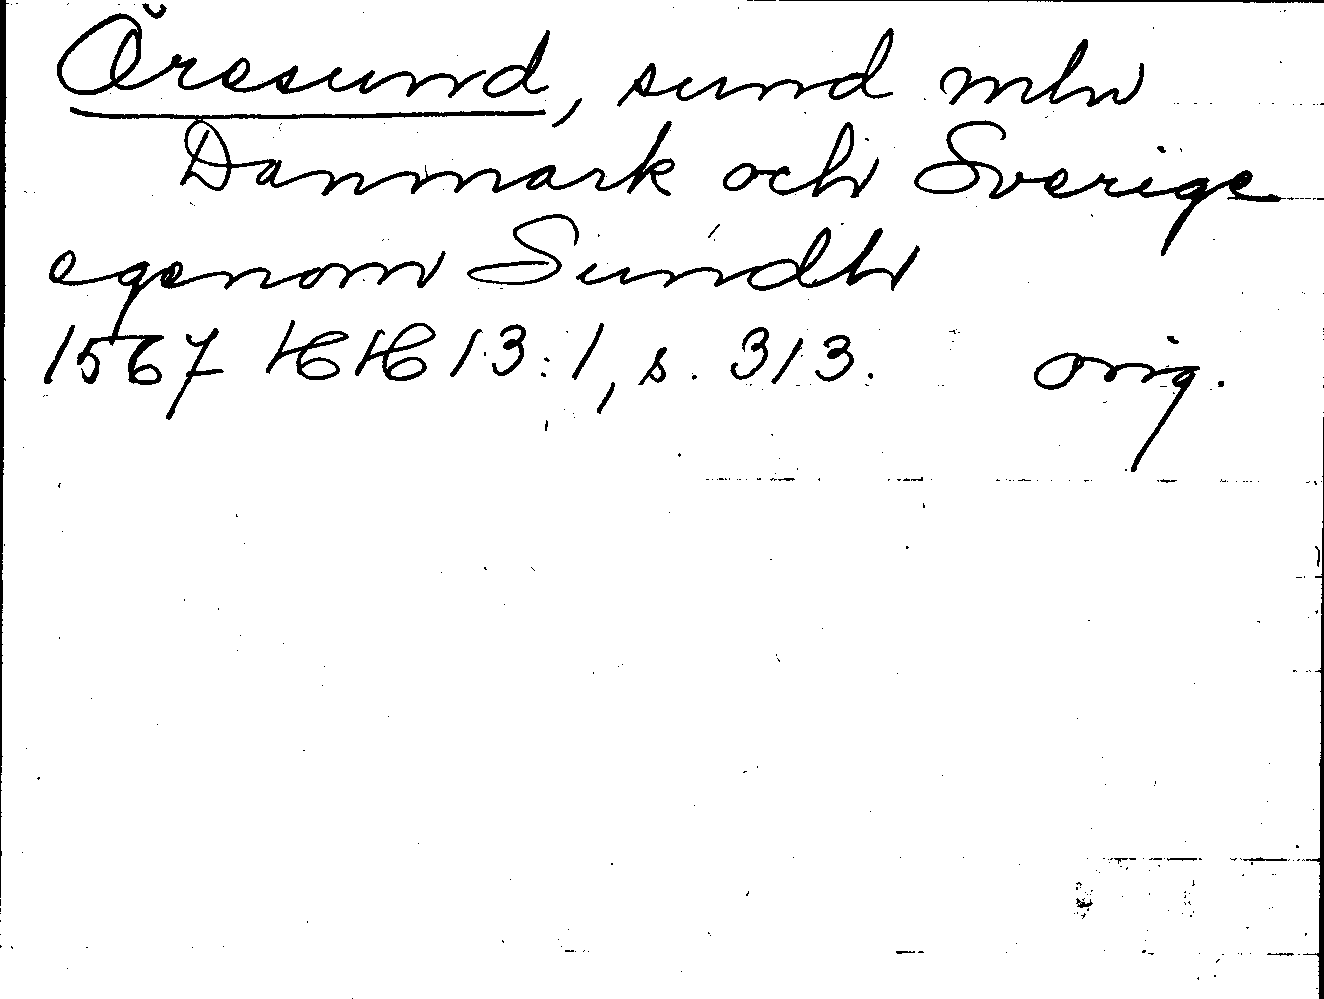 Öresund, sund mln
Danmark och Sverige
egenom Sundh
1567 HH 13:1, s. 313. orig.